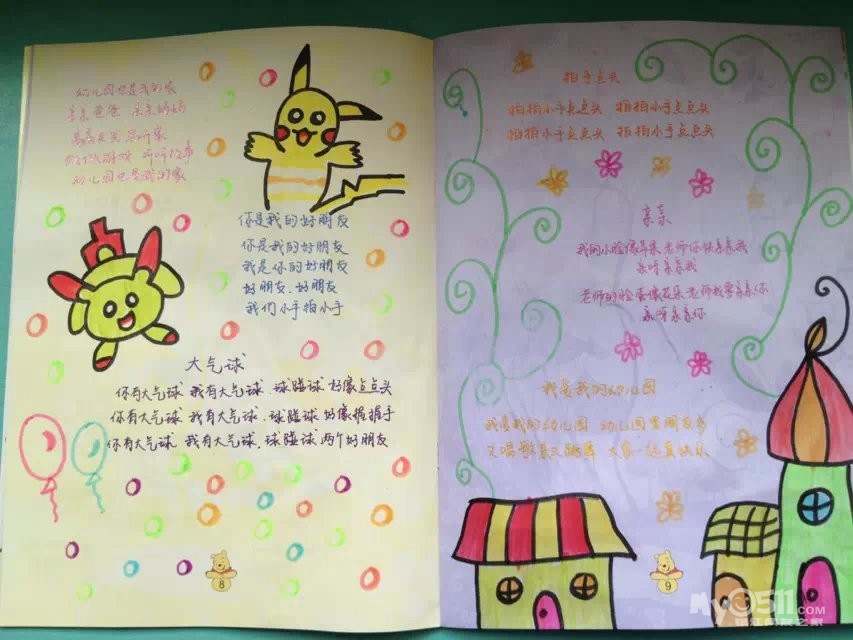 幼儿园也是我的家
亲亲爸爸 亲亲妈妈
高高兴兴
做做游戏 听听故事
幼儿园也是我的家
你是我的好朋友
你是我的好朋友
我是你的好朋友
好朋友.好朋友
我们小手拍小手
大气球
你有大气球 我有大气球.球碰球 好像点点头
你有大气球 我有大气球.球碰球 好像握握手
你有大气球 我有大气球.球碰球 两个好朋友
8
拍手点头
拍拍小手点点头 拍拍小手点点头
拍拍小手点点头 拍拍小手点点头
亲亲
我的小脸像苹果 老师你快亲亲我
亲呀亲亲我
老师的脸蛋像花朵 老师我要亲亲你
亲呀亲亲你
我爱我的幼儿园
我爱我的幼儿园 幼儿园里朋友多
又唱歌来又跳舞 大家一起真快乐
9
My0511.COM